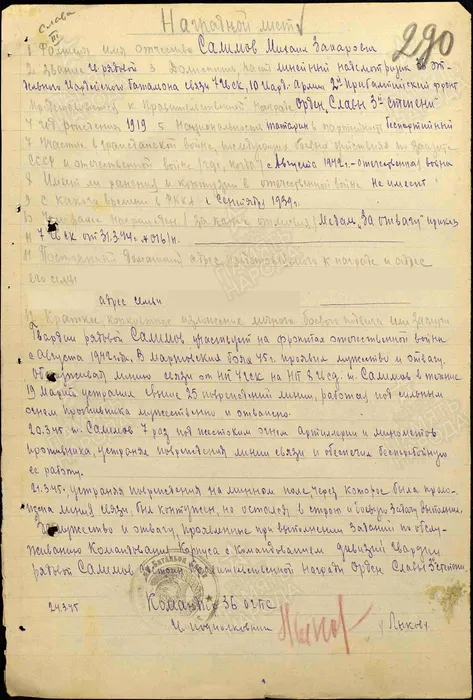 Слава III
290
Наградной лист
1 Фамилия имя отчество Салимов Михаил Захарович
2 Звание гв рядовой 3 Должность, часть линейный надсмотрщик 36 от-
дельного Гвардейского батальона связи 7 ГвСК, 10 Гвард. Армии 2го Прибалтийский фронт
Представляется к Правительственной награде Орден "Славы 3й степени"
4 Год рождения 1919 5 Национальность татарин 6 партийность беспартийный
7 Участие в гражданской войне, последующих боевых действиях по защите
СССР и отечественной войне (где, когда) с Августа 1942 г. - отечественная война
8 Имеет ли ранения и контузии в отечественной войне Не имеет
9 С какого времени в РККА с Сентября 1939 г.
10 Чем ранее награжден (за какие отличия) Медаль "За отвагу" приказ
7 ГвСК от 31.3.44 г. № 016/н.
11 Постоянный домашний адрес представляемого к награде и адрес
его семьи
адрес семьи
Краткое конкретное изложение личного боевого подвига или заслуг
Гвардии рядовой Салимов участвует на фронтах отечественной войны
с Августа 1942 года. В мартовских боях 45 г. проявил мужество и отвагу.
Обслуживая линию связи от НП 7 ГвСК на НП 8 Гвсд. т. Салимов в течение
19 Марта устранил свыше 25 повреждений линии, работая под сильным
огнем противника мужественно и отважно.
20.3.45 т. Салимов 7 раз под жестоким огнем артиллерии и минометов
противника, устранял повреждения линии связи и обеспечил бесперебойную
ее работу.
21.3.45 устраняя повреждения на минном поле через которое была проло-
жена линия связи, был контужен, но остался в строю и боевую задачу выполнил.
За мужество и отвагу, проявленные при выполнении заданий по обслу-
живанию Командования Корпуса с Командованием дивизий Гвардии
рядовой Салимов достоин правительственной награды Орден Славы 3й степени.
24.3.45 Командир 36 огбс
Гв подполковник / Лыков /
ПАМЯТЬ НАРОДА